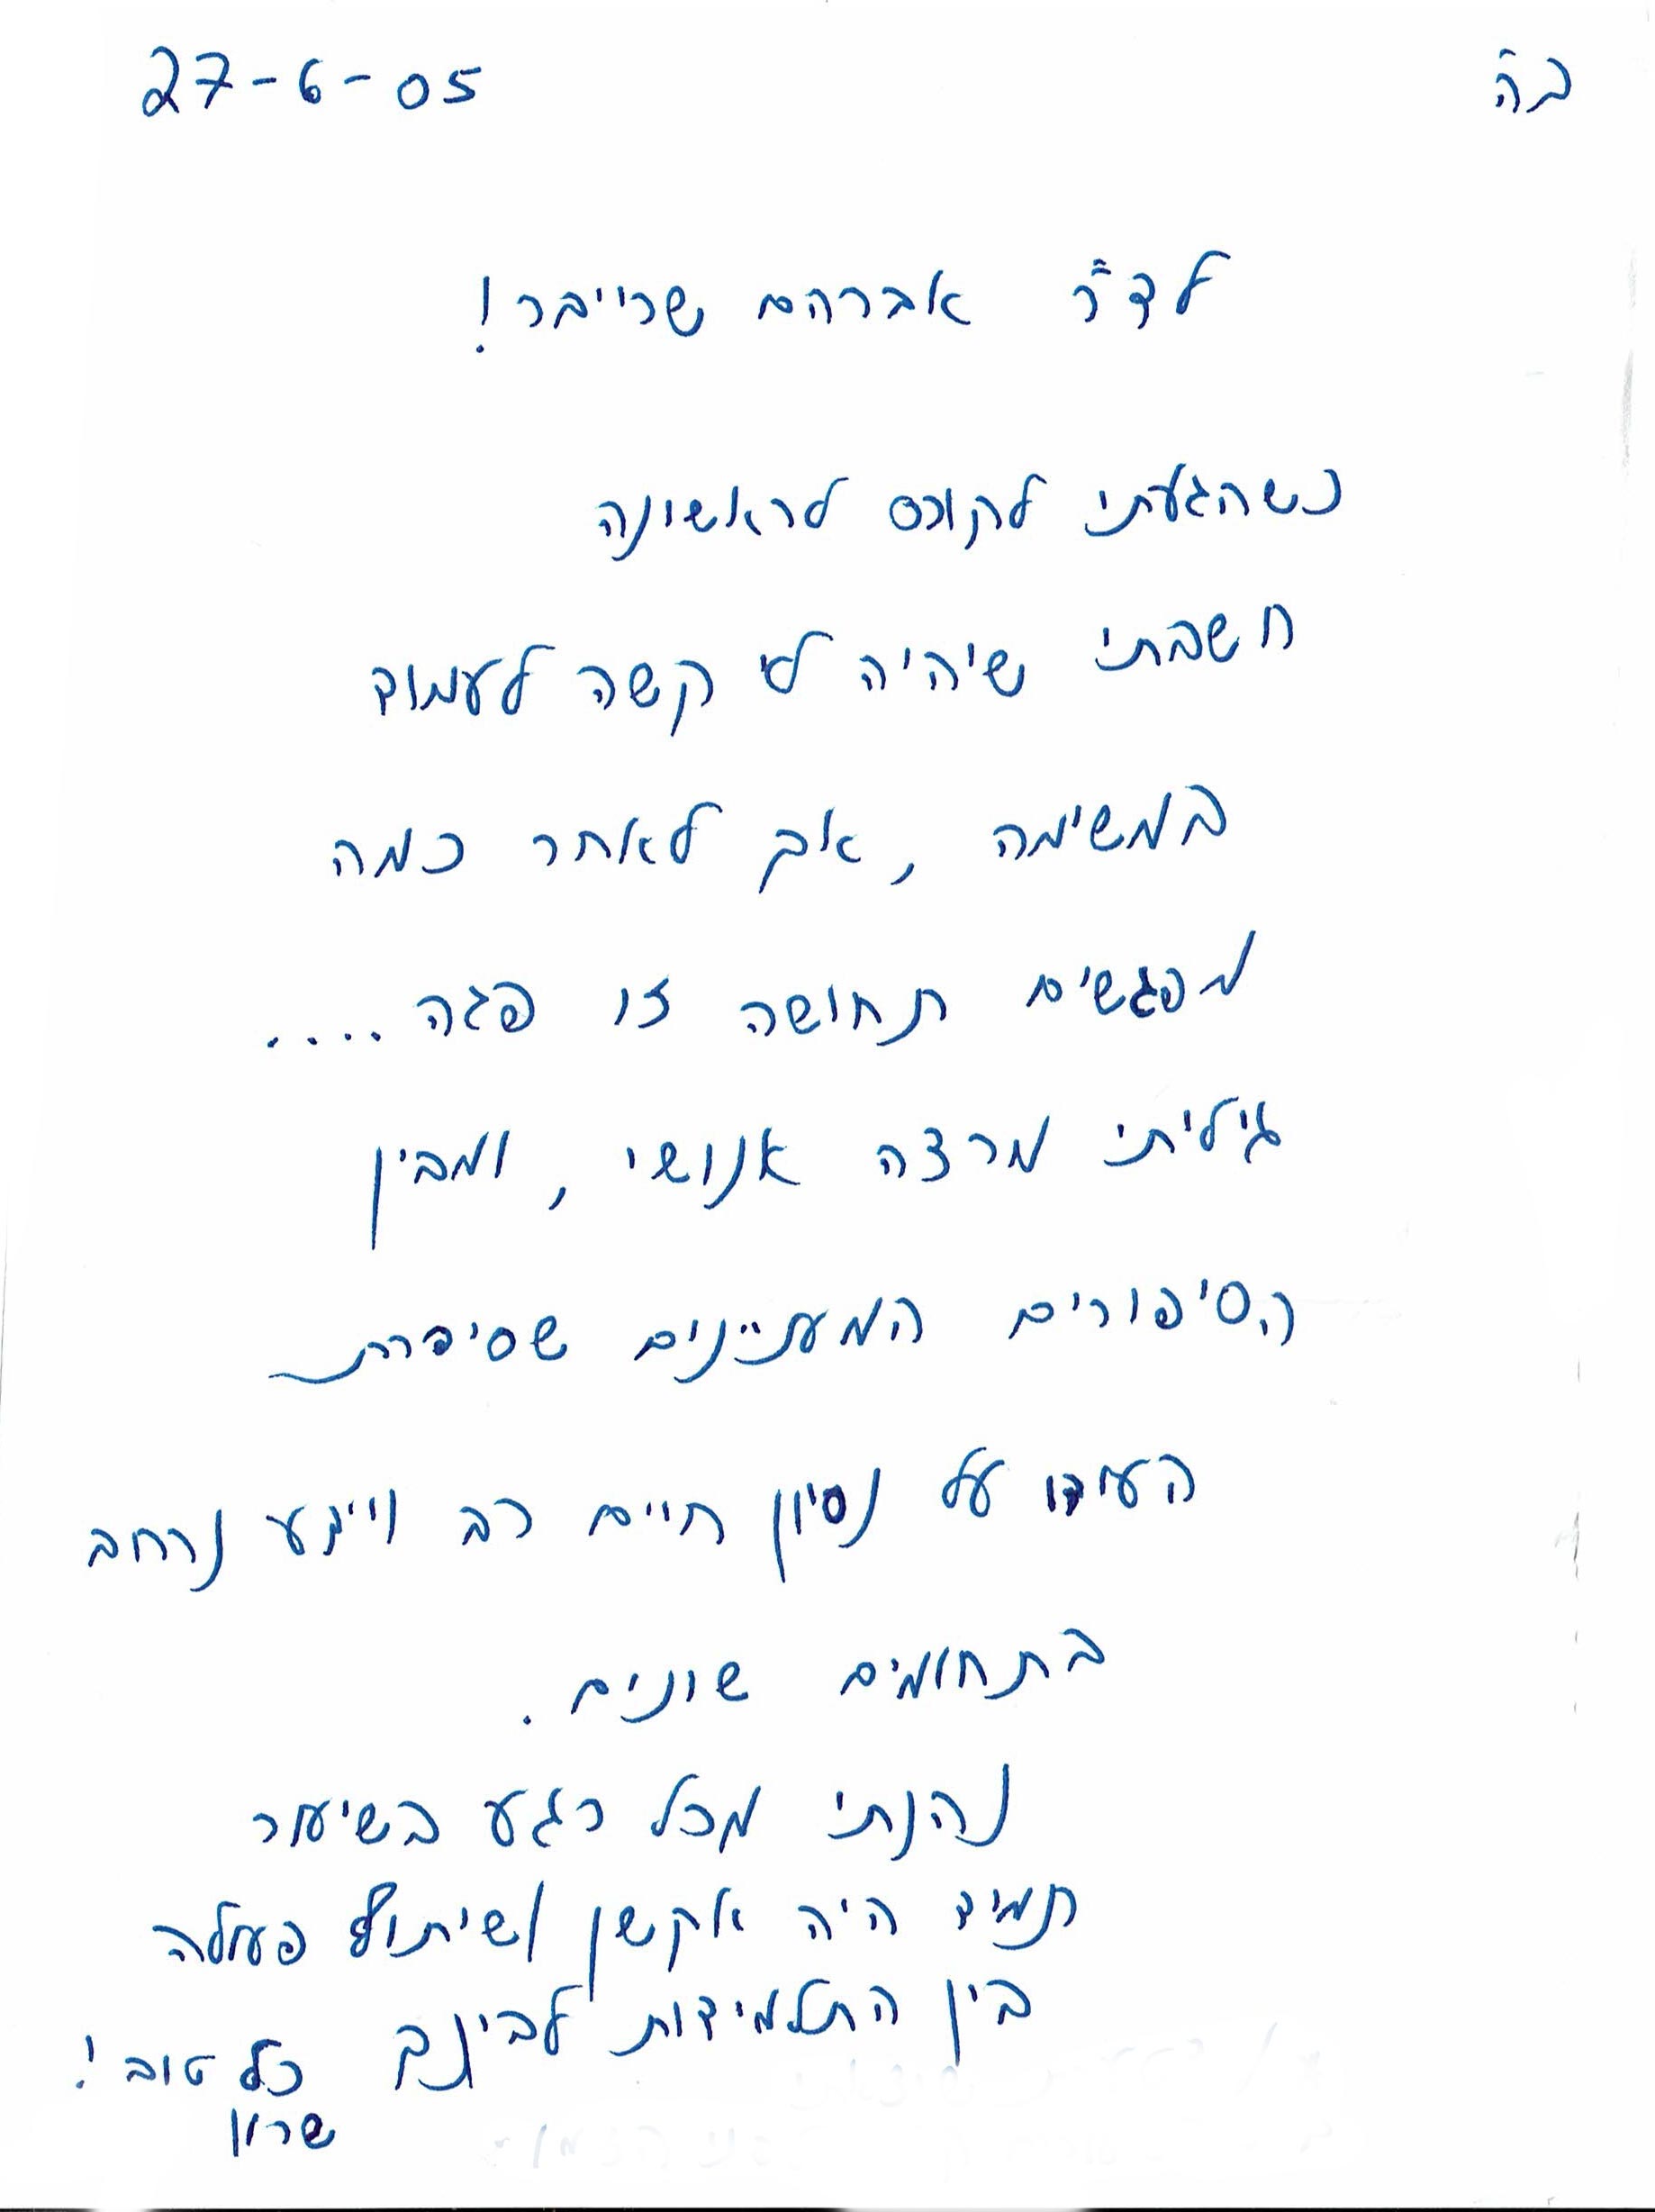 ב"ה 27-6-05
לד"ר אברהם שרייבר!
כשהגעתי לקורס לראשונה
חשבתי שיהיה לי קשה לעמוד
במשימה, אך לאחר כמה
מפגשים תחושה זו פגה.....
גיליתי מרצה אנושי, ומבין
הסיפורים המעניינים שסיפרת
העידו על נסיון חיים רב וידע נרחב
בתחומים שונים.
נהנתי מכל רגע בשיעור
תמיד היה אקשן ושיתוף פעולה
בין התלמידות לבינך כל טוב!
שרון